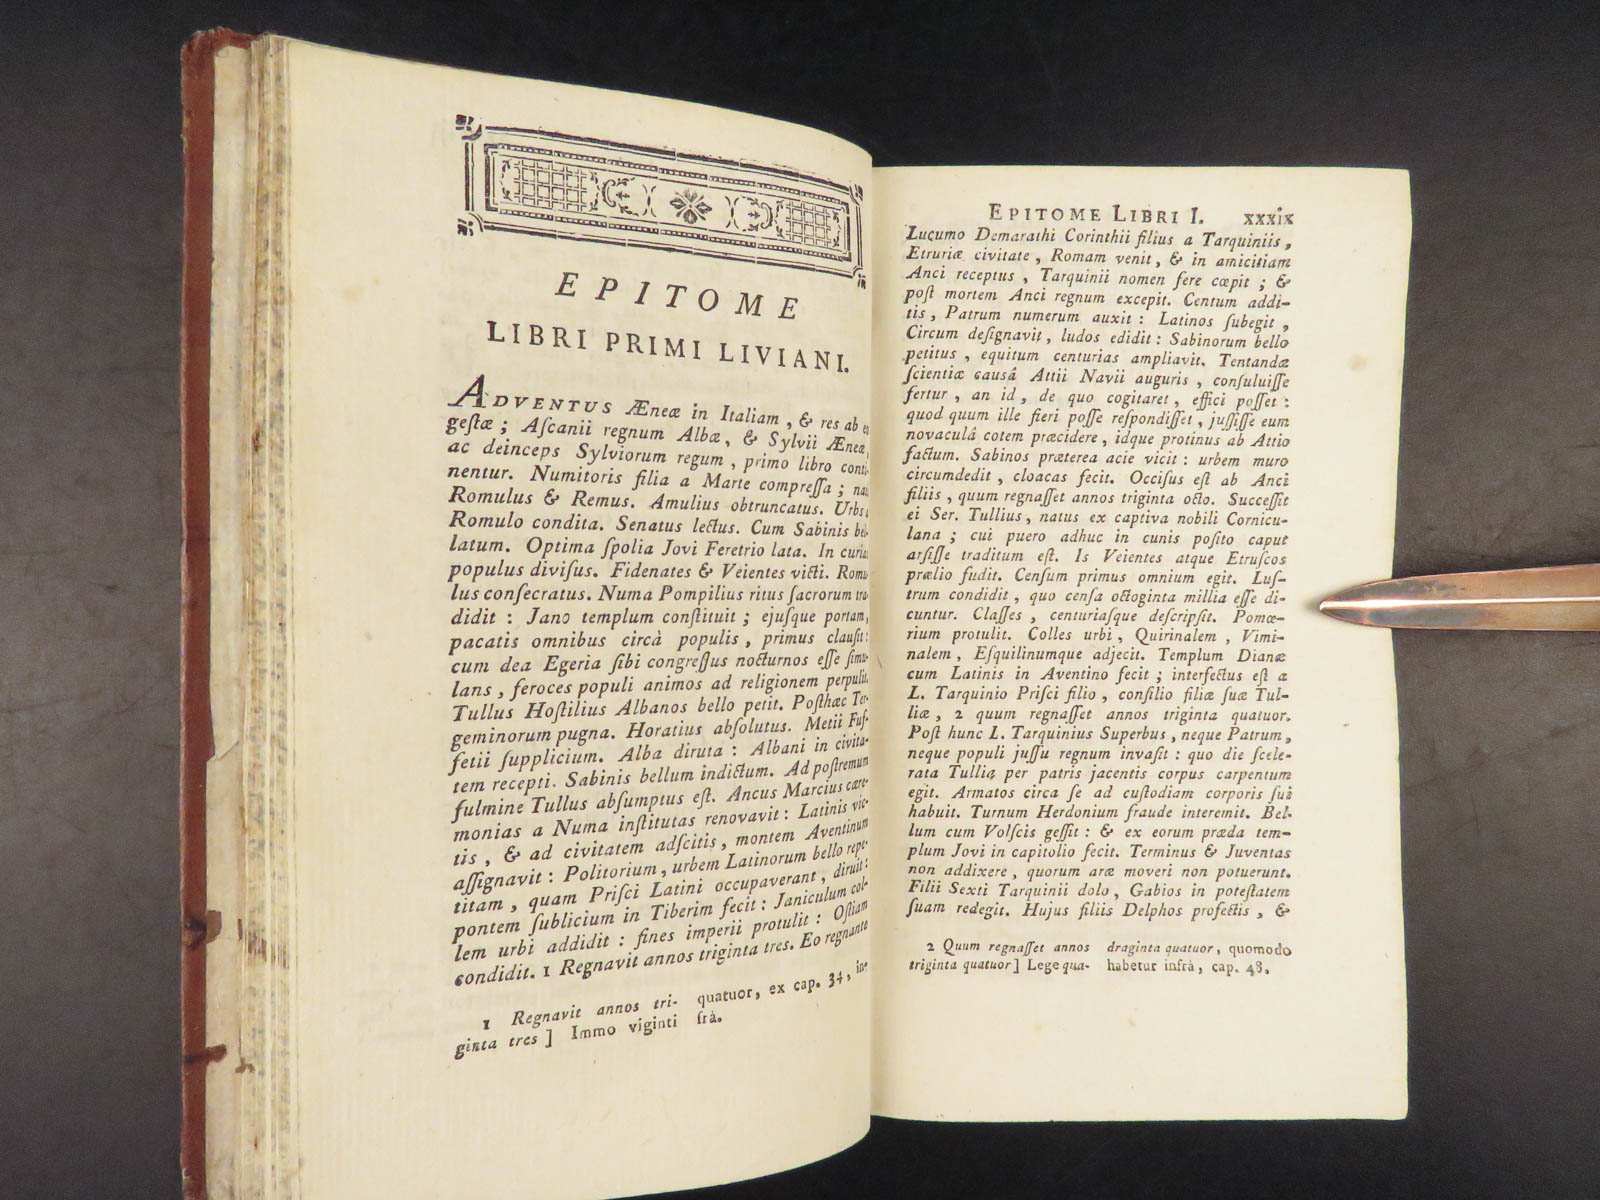 EPITOME
LIBRI PRIMI LIVIANI.
ADVENTUS Æneæ in Italiam, & res ab eo
geſtæ; Aſcanii regnum Albæ, & Sylvii Æneæ,
ac deinceps Sylviorum regum, primo libro conti-
nentur. Numitoris filia a Marte compreſſa; nati
Romulus & Remus. Amulius obtruncatus. Urbs a
Romulo condita. Senatus lectus. Cum Sabinis bel-
latum. Optima ſpolia Jovi Feretrio lata. In curias
populus diviſus. Fidenates & Veientes victi. Romu-
lus conſecratus. Numa Pompilius ritus ſacrorum tra-
didit: Jano templum conſtituit; ejuſque portam,
pacatis omnibus circà populis, primus clauſit:
cum dea Egeria ſibi congreſſus nocturnos eſſe ſimu-
lans, feroces populi animos ad religionem perpulit.
Tullus Hoſtilius Albanos bello petit. Poſthæc Ter-
geminorum pugna. Horatius abſolutus. Metii Fuf-
fetii ſupplicium. Alba diruta: Albani in civita-
tem recepti. Sabinis bellum indictum. Ad poſtremum
fulmine Tullus abſumptus eſt. Ancus Marcius cære-
monias a Numa inſtitutas renovavit: Latinis vic-
tis, & ad civitatem adſcitis, montem Aventinum
aſſignavit: Politorium, urbem Latinorum bello repe-
titam, quam Priſci Latini occupaverant, diruit:
pontem ſublicium in Tiberim fecit: Janiculum col-
lem urbi addidit: fines imperii protulit: Oſtiam
condidit. 1 Regnavit annos triginta tres. Eo regnante
1 Regnavit annos tri-
ginta tres] Immo viginti
quatuor, ex cap. 34, in-
frà.
EPITOME LIBRI I. xxxix
Lucumo Demarathi Corinthii filius a Tarquiniis,
Etruriæ civitate, Romam venit, & in amicitiam
Anci receptus, Tarquinii nomen fere cœpit; &
poſt mortem Anci regnum excepit. Centum addi-
tis, Patrum numerum auxit: Latinos ſubegit,
Circum deſignavit, ludos edidit: Sabinorum bello
petitus, equitum centurias ampliavit. Tentandæ
ſcientiæ cauſâ Attii Navii auguris, conſuluiſſe
fertur, an id, de quo cogitaret, effici poſſet:
quod quum ille fieri poſſe reſpondiſſet, juſſiſſe eum
novaculâ cotem præcidere, idque protinus ab Attio
factum. Sabinos præterea acie vicit: urbem muro
circumdedit, cloacas fecit. Occiſus eſt ab Anci
filiis, quum regnaſſet annos triginta octo. Succeſſit
ei Ser. Tullius, natus ex captiva nobili Cornicu-
lana; cui puero adhuc in cunis poſito caput
arſiſſe traditum eſt. Is Veientes atque Etruſcos
prælio fudit. Cenſum primus omnium egit. Luſ-
trum condidit, quo cenſa octoginta millia eſſe di-
cuntur. Claſſes, centuriaſque deſcripſit. Pomœ-
rium protulit. Colles urbi, Quirinalem, Vimi-
nalem, Eſquilinumque adjecit. Templum Dianæ
cum Latinis in Aventino fecit; interfectus eſt a
L. Tarquinio Priſci filio, conſilio filiæ ſuæ Tul-
liæ, 2 quum regnaſſet annos triginta quatuor.
Poſt hunc L. Tarquinius Superbus, neque Patrum,
neque populi juſſu regnum invaſit: quo die ſcele-
rata Tullia per patris jacentis corpus carpentum
egit. Armatos circa ſe ad cuſtodiam corporis ſui
habuit. Turnum Herdonium fraude interemit. Bel-
lum cum Volſcis geſſit: & ex eorum præda tem-
plum Jovi in capitolio fecit. Terminus & Juventas
non addixere, quorum aræ moveri non potuerunt.
Filii Sexti Tarquinii dolo, Gabios in poteſtatem
ſuam redegit. Hujus filiis Delphos profectis, &
2 Quum regnaſſet annos
triginta quatuor] Lege qua-
draginta quatuor, quomodo
habetur infrà, cap. 48,